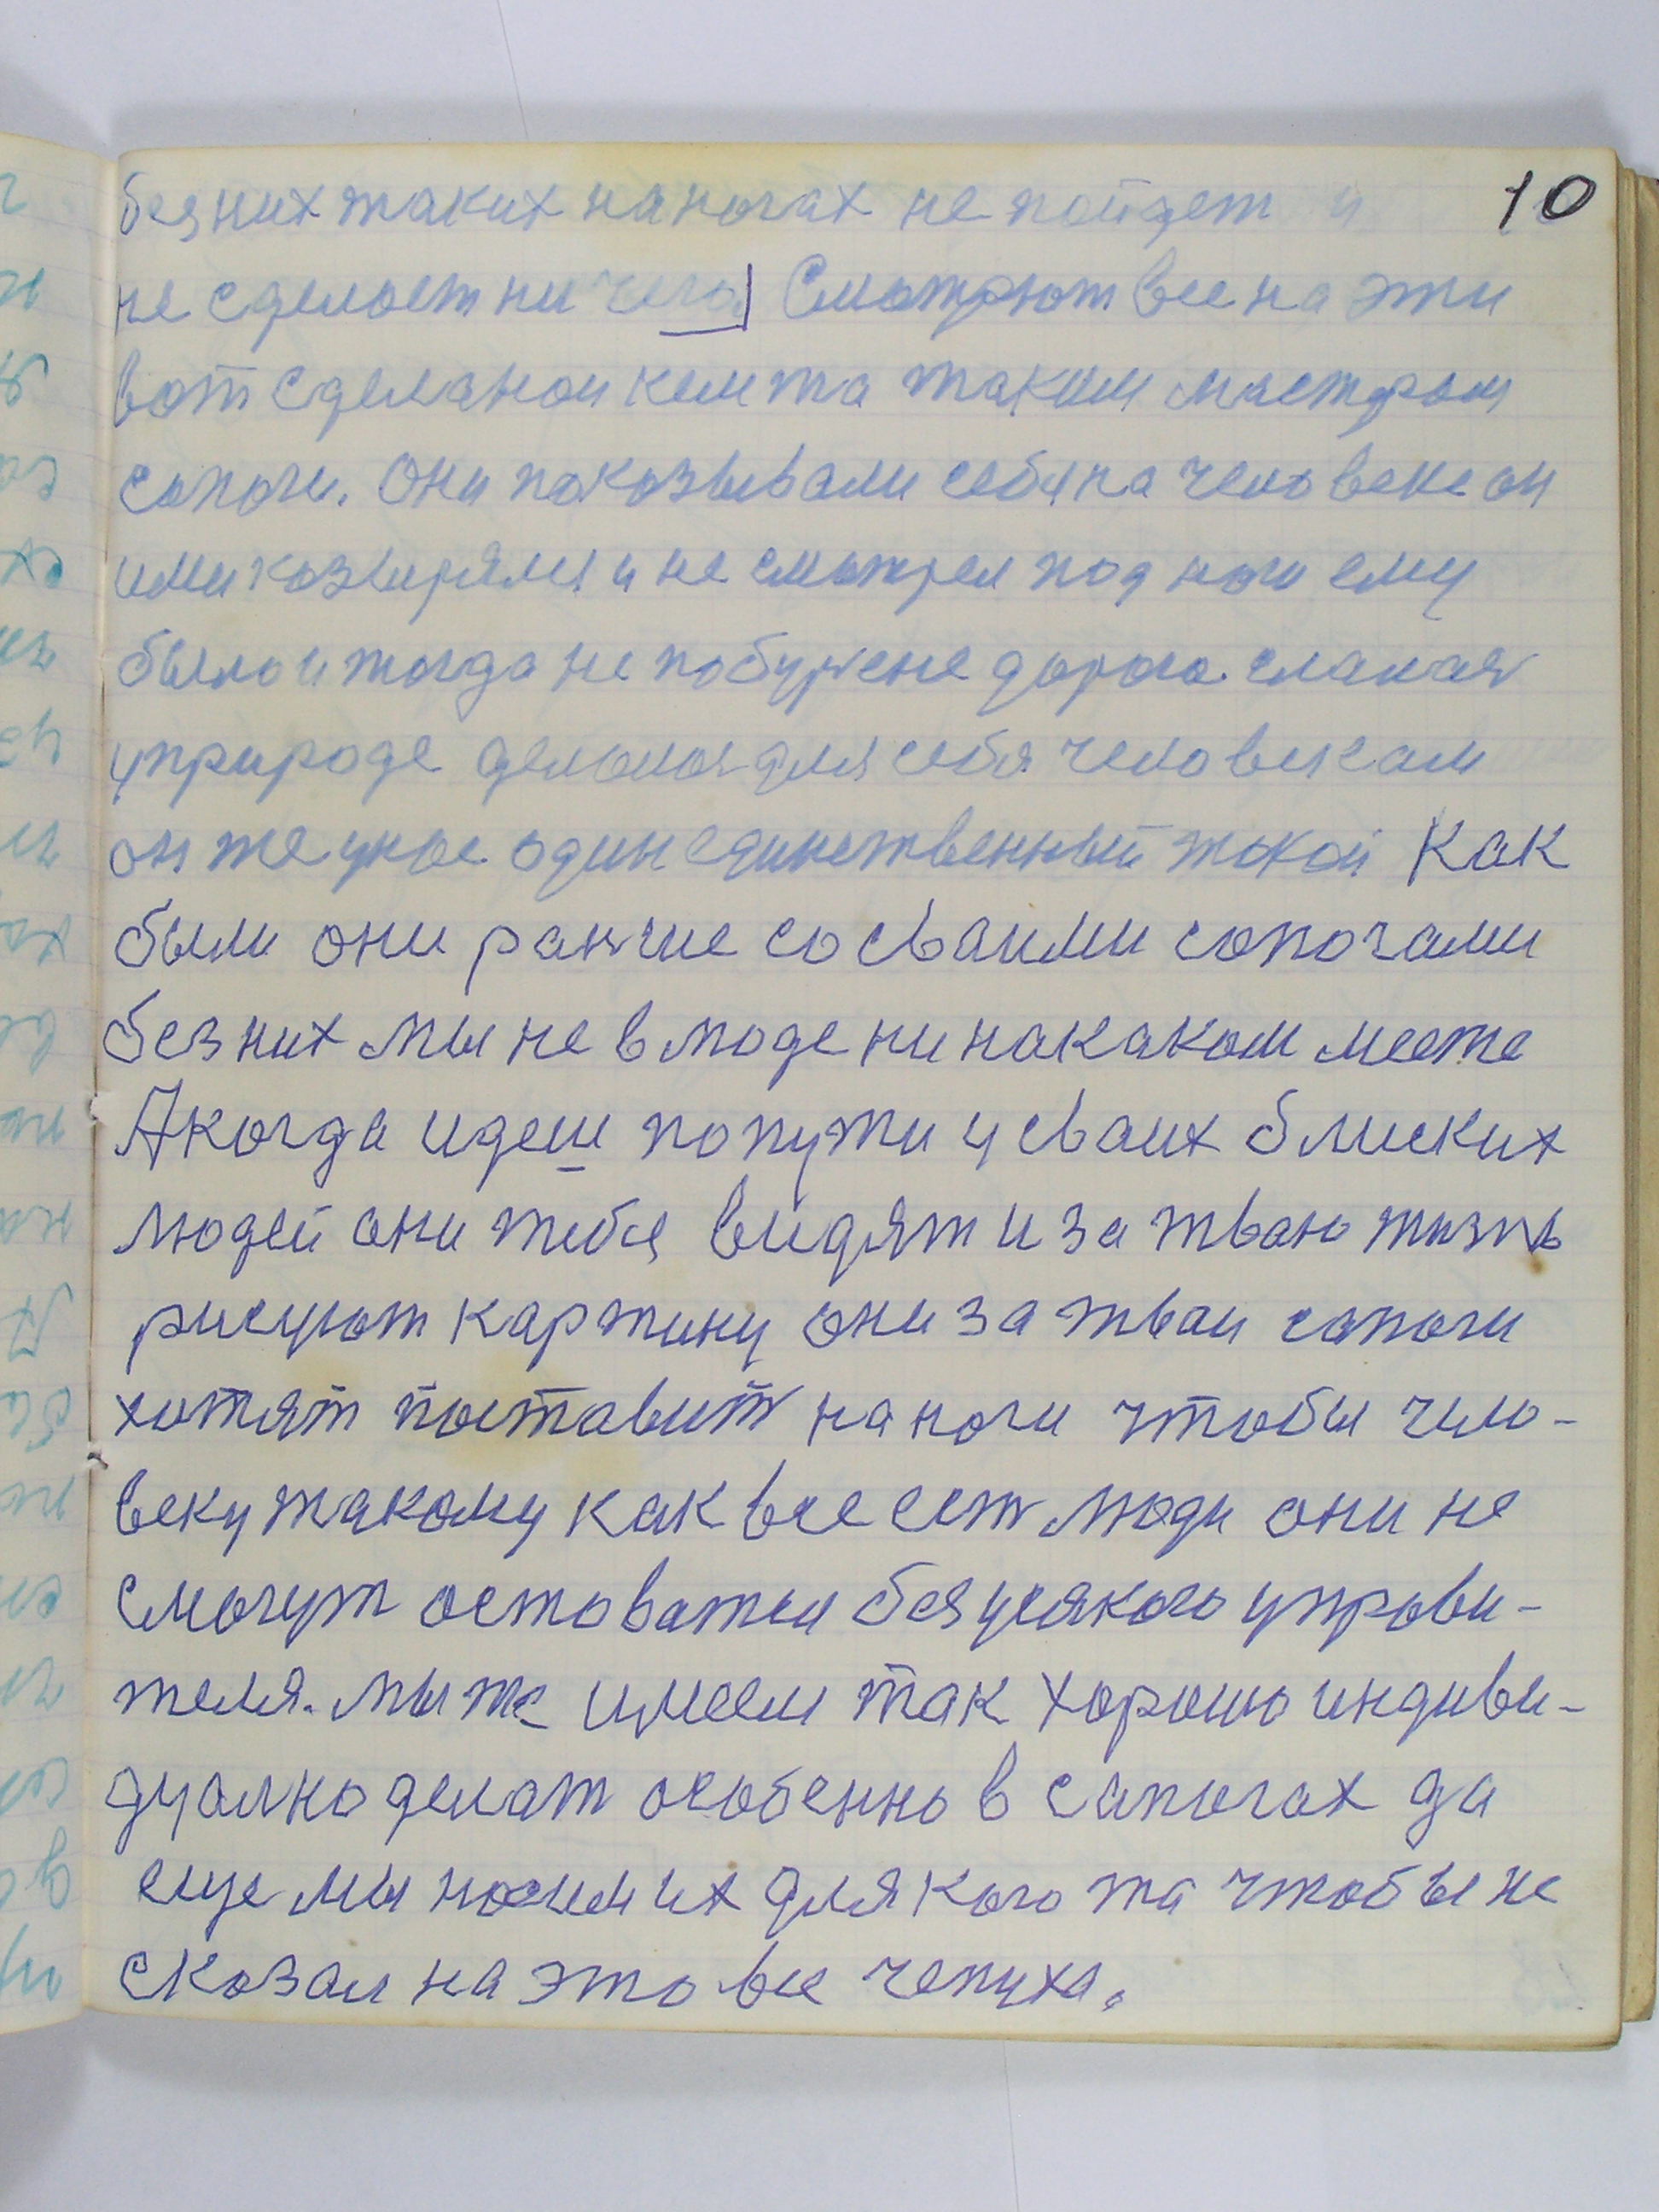 10
без них таких на ногах не пойдет и
не сделает ни чего. Смотрют все на эти
вот сделаном кем та таким мастром
сапоги. Они показывали себя на человеке он
ими козырял и не смотрел под ноги ему
было и тогда не по буржене дорога. сланая
у природе делалося для себя человеком
он же у нас один единственный такой Как
были они ранчие со сваими сапогами
без них мы не в моде ни на какаком месте
А когда идеш по пути у сваих блиских
людей они тебя видят и за тваю жизнь
рисуют картину они за тваи сапоги
хотят поставит на ноги чтобы чило-
веку такому как все ест люди они не
смогут оставатся без усякого управи-
теля. мы же имеем так хорошо индиви-
дуално делат особенно в сапогах да
еще мы носим их для кого та чтобы не
сказал на это все чепуха.